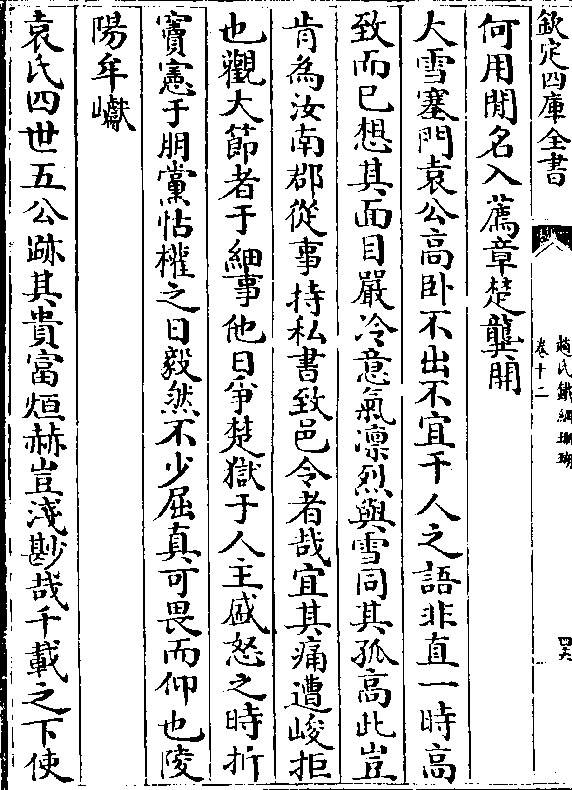 欽定四庫全書
趙氏鐵網珊瑚
卷十二
四六
何用閒名入薦章楚龔開
大雪塞門袁公高卧不出不宜干人之語非直一時高
致而已想其面目嚴冷意氣凛烈與雪同其孤高此豈
肯為汝南郡從事持私書致邑令者哉宜其痛遭峻拒
也觀大節者于細事他日爭楚獄于人主盛怒之時折
竇憲于朋黨怙權之日毅然不少屈真可畏而仰也陵
陽牟巘
袁氏四世五公跡其貴富烜赫豈淺尠哉千載之下使